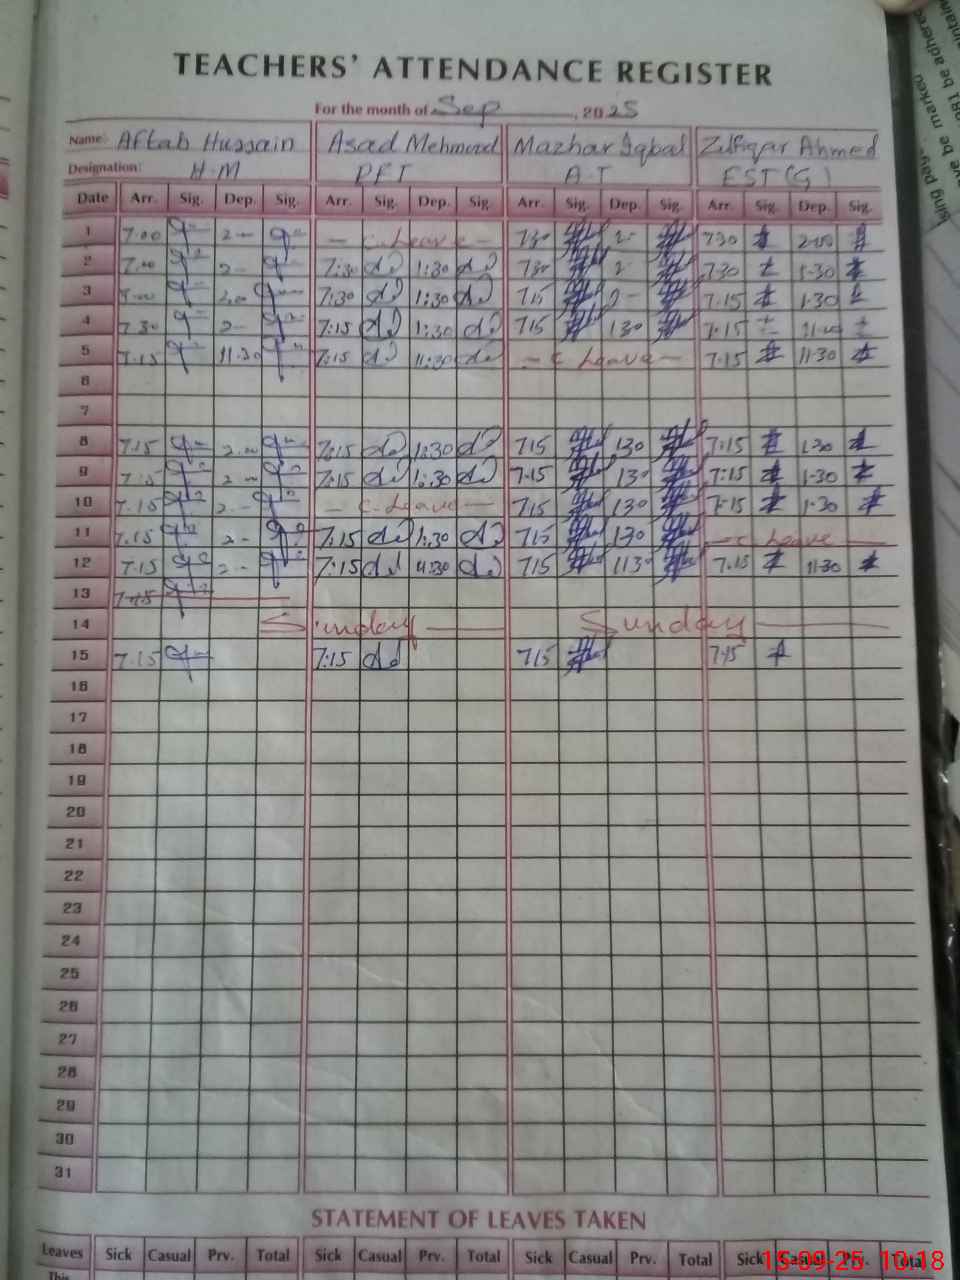 TEACHERS' ATTENDANCE REGISTER
For the month of Sep, 2025
Name: Aftab Hussain Asad Mehmood Mazhar Iqbal Zulfiqar Ahmed
Designation: H.M PET A.T EST(G)
Date Arr. Sig. Dep. Sig. Arr. Sig. Dep. Sig. Arr. Sig. Dep. Sig. Arr. Sig. Dep. Sig.
1 7.00 2- - C. Leave - 730 2- 730 2-00
2 7.00 2- 7:30 1:30 730 2- 730 1-30
3 2.00 7:30 1:30 715 2- 7.15 1.30
4 7.30 2- 7:15 1:30 715 130 7.15 11-00
5 7.15 11.30 7:15 11:30 - C Leave - 7.15 11-30
6
7
8 7.15 2.00 7:15 1:30 715 130 7:15 1.30
9 7.15 2- 7:15 1:30 7.15 130 7:15 1-30
10 7.15 2- - C. Leave - 715 130 7.15 1.30
11 7.15 2- 7:15 1:30 715 130 - C Leave -
12 7.15 2- 7:15 11:30 715 1130 7.15 11.30
13 7.15
14 Sunday Sunday
15 7.15 7:15 715 7.15
16
17
18
19
20
21
22
23
24
25
26
27
28
29
30
31
STATEMENT OF LEAVES TAKEN
Leaves Sick Casual Prv. Total Sick Casual Prv. Total Sick Casual Prv. Total Sick Casual Prv. Total
This
15-09-25 10:18